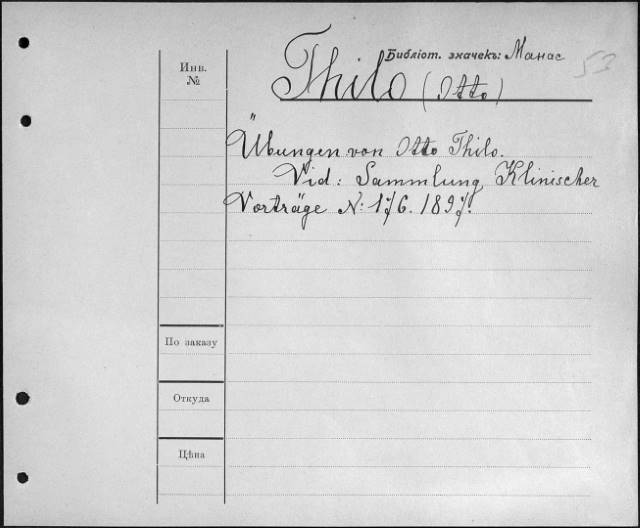 Библіот. значекъ: Манас
53
Инв.
№
Thilo (Otto)
Übungen von Otto Thilo.
Vid: Sammlung Klinischer
Vorträge N: 176. 1897.
По заказу
Откуда
Цѣна